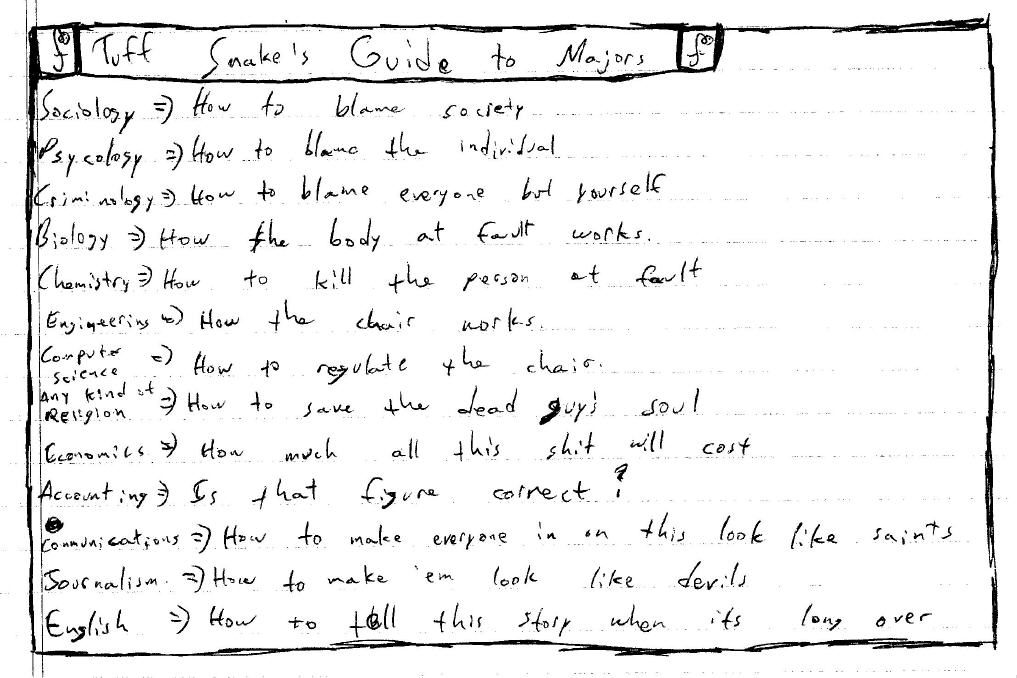 Tuff Snake's Guide to Majors
Sociology => How to blame society
Psycology => How to blame the individual
Criminology => How to blame everyone but yourself
Biology => How the body at fault works.
Chemistry => How to kill the person at fault
Engineering => How the chair works.
Computer science => How to regulate the chair.
Any kind of Religion => How to save the dead guy's soul
Economics => How much all this shit will cost
Accounting => Is that figure correct?
Communications => How to make everyone in on this look like saints
Journalism => How to make 'em look like devils
English => How to tell this story when its long over